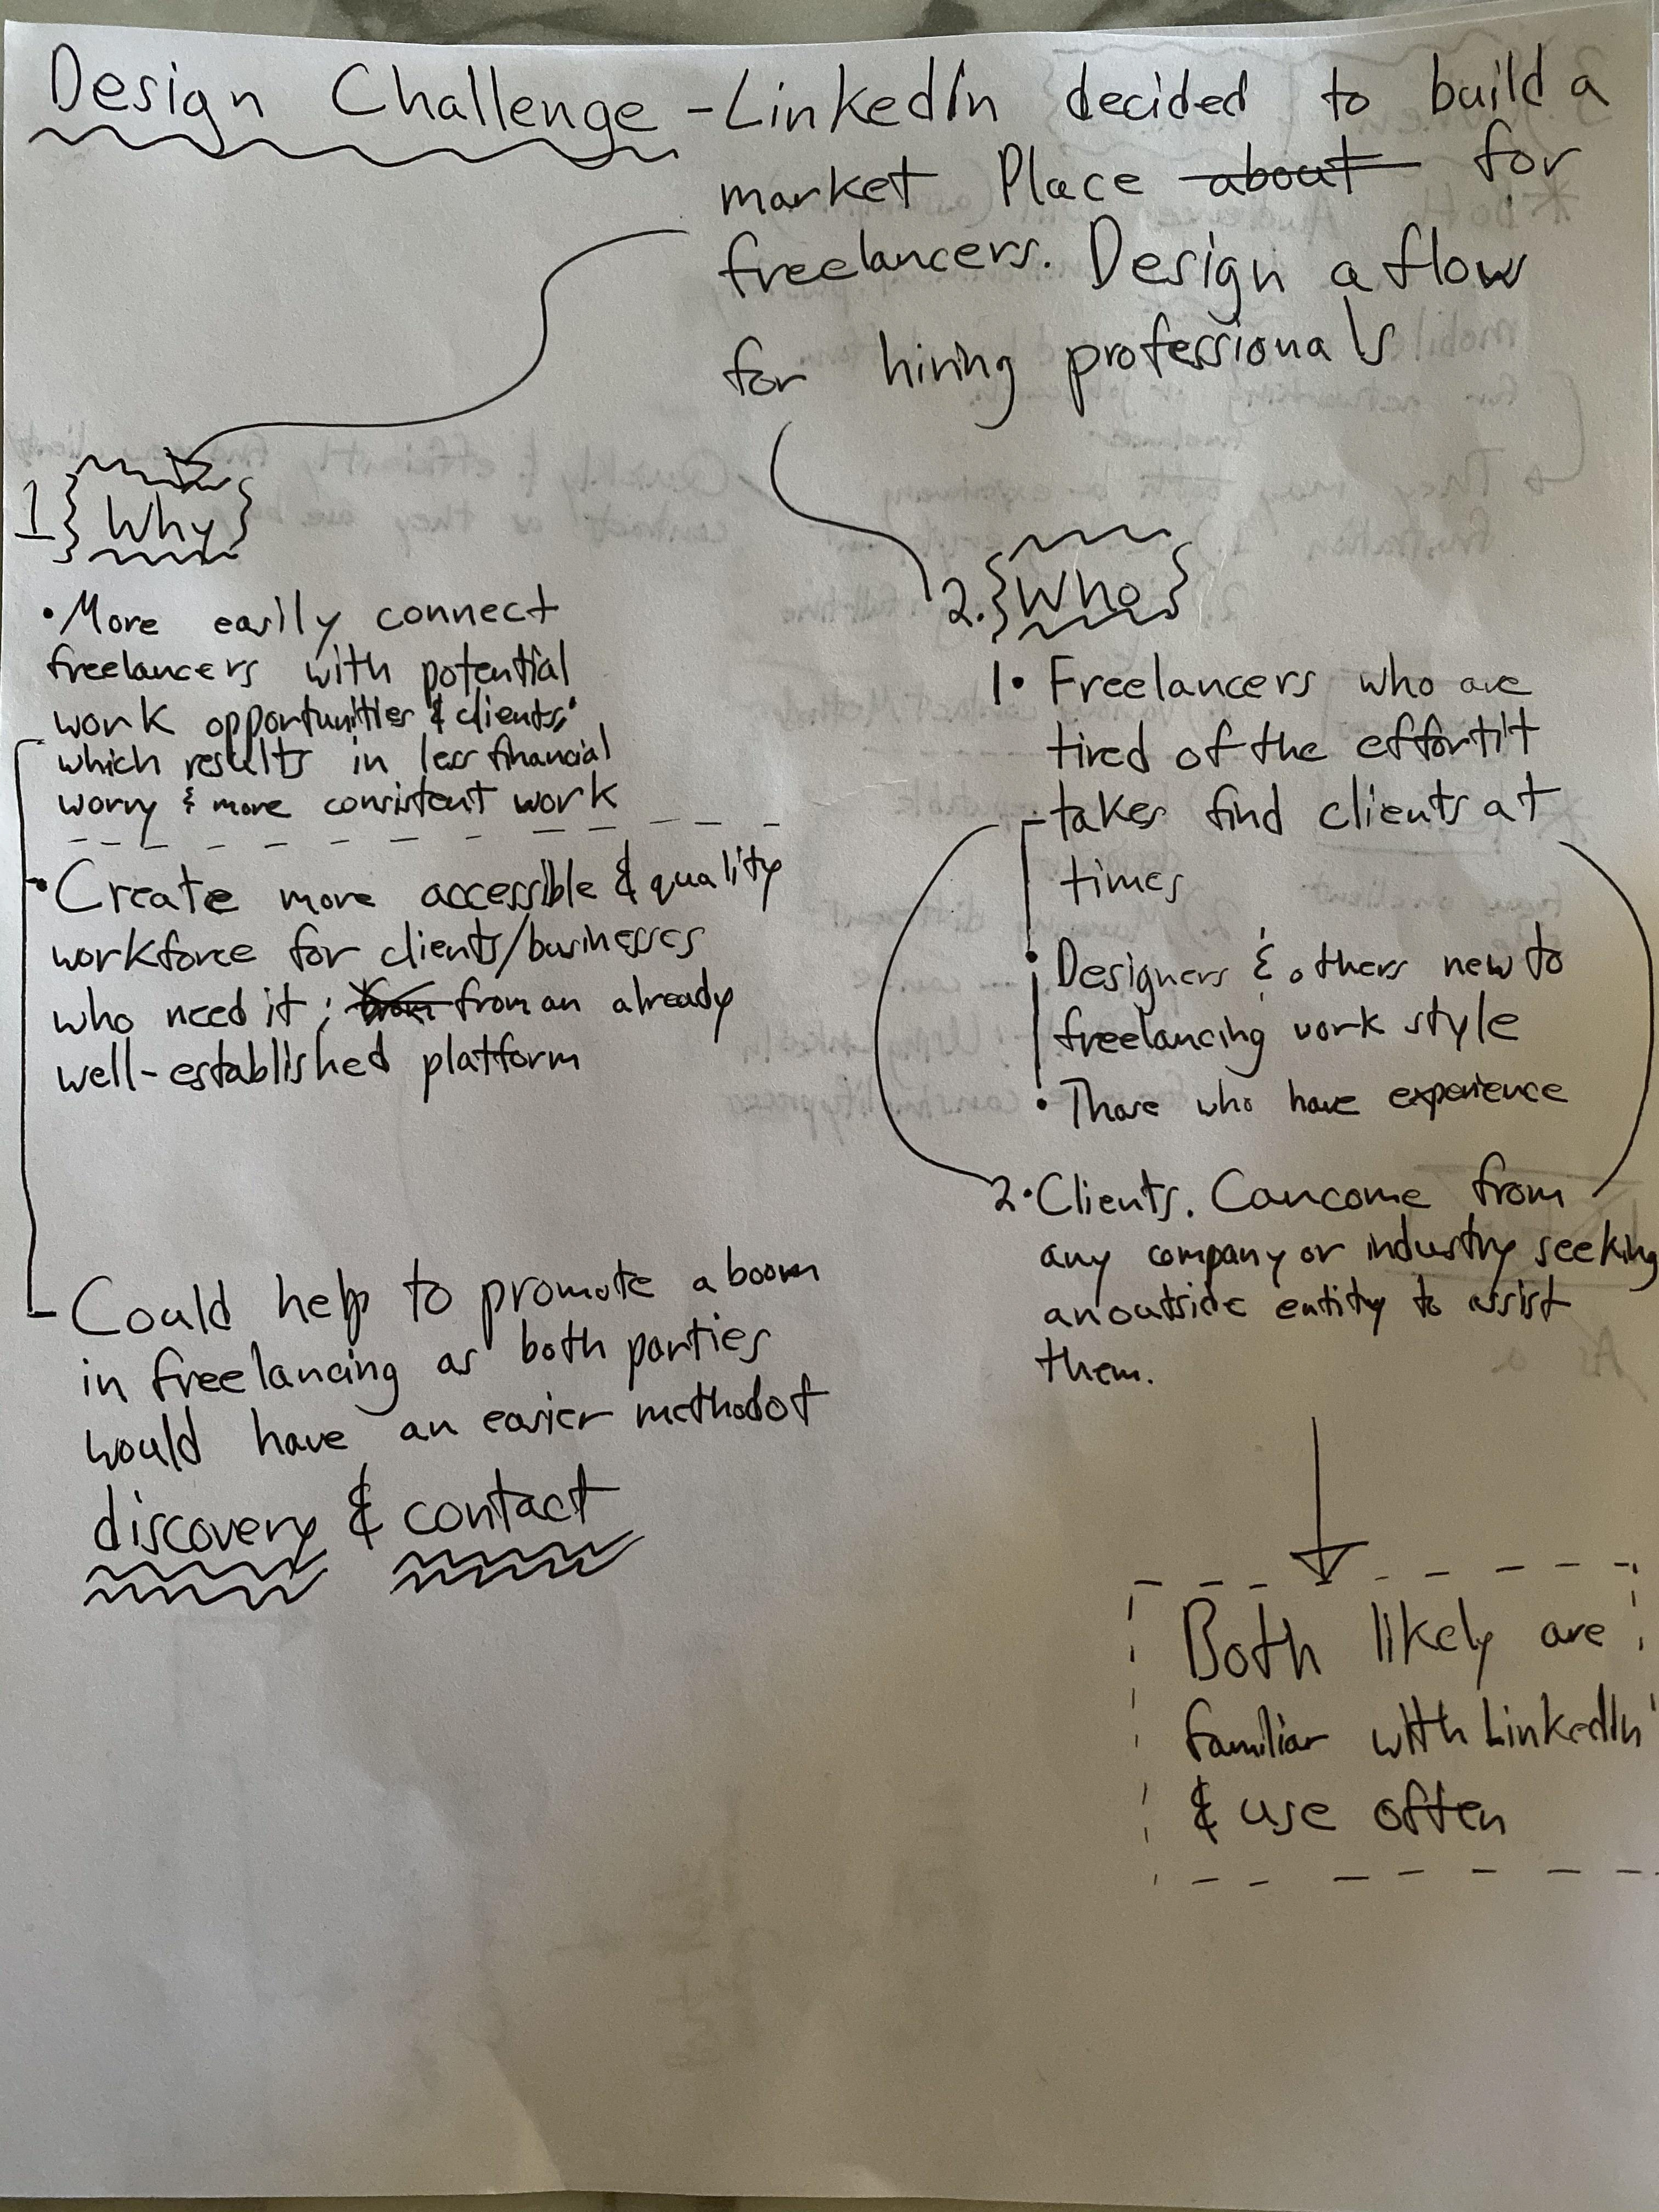 Design Challenge - LinkedIn decided to build a
market Place about for
freelancers. Design a flow
for hiring professionals
1 { Why }
• More easily connect
freelancers with potential
work opportunities & clients;
which results in less financial
worry & more consistent work
• Create more accessible & quality
workforce for clients/businesses
who need it; from from an already
well-established platform
Could help to promote a boom
in freelancing as both parties
would have an easier method of
discovery & contact
2. { Who }
1. Freelancers who are
tired of the effort it
takes find clients at
times
• Designers & others new to
freelancing work style
• Those who have experience
2. Clients. Can come from
any company or industry seeking
an outside entity to assist
them.
Both likely are
familiar with LinkedIn
& use often